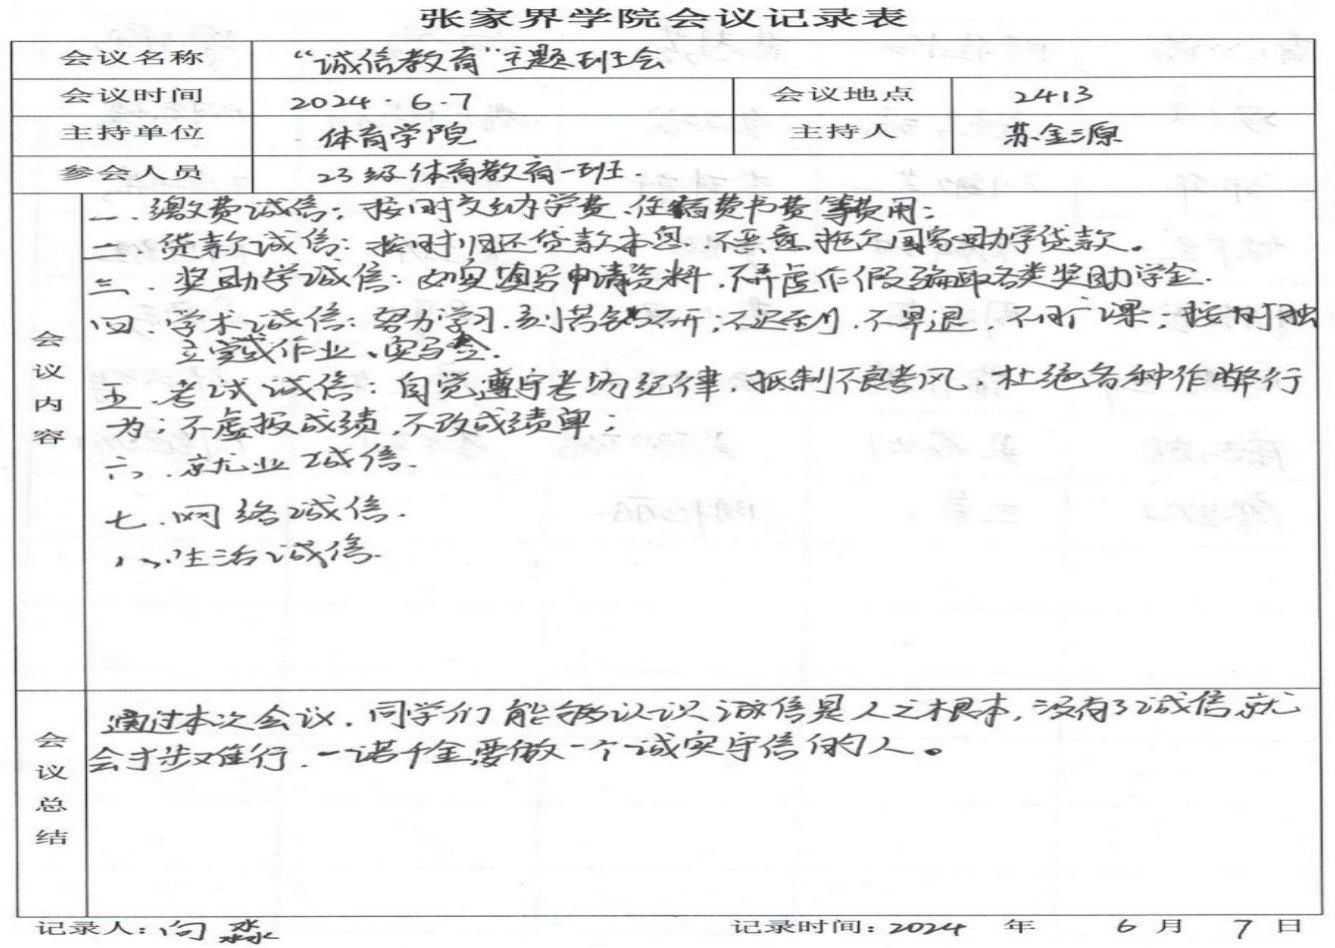 张家界学院会议记录表
会议名称 “诚信教育”主题班会
会议时间 2024.6.7 会议地点 2413
主持单位 体育学院 主持人 苏金源
参会人员 23级体育教育一班.
会议内容
一.缴费诚信:按时交纳学费、住宿费书费等费用;
二 贷款诚信:按时归还贷款本息,不恶意拖欠国家助学贷款。
三.奖助学诚信:如实填写申请资料,不弄虚作假骗取各类奖助学金.
四.学术诚信:努力学习,刻苦钻研;不迟到、不早退、不旷课;按时独
立完成作业、实验等.
五.考试诚信:自觉遵守考场纪律,抵制不良考风,杜绝各种作弊行
为;不虚报成绩,不改成绩单;
六.就业诚信.
七.网络诚信.
八.生活诚信.
会议总结
通过本次会议,同学们能够认识诚信是人之根本,没有了诚信就
会寸步难行,一诺千金要做一个诚实守信的人。
记录人:向淼 记录时间:2024 年 6 月 7 日